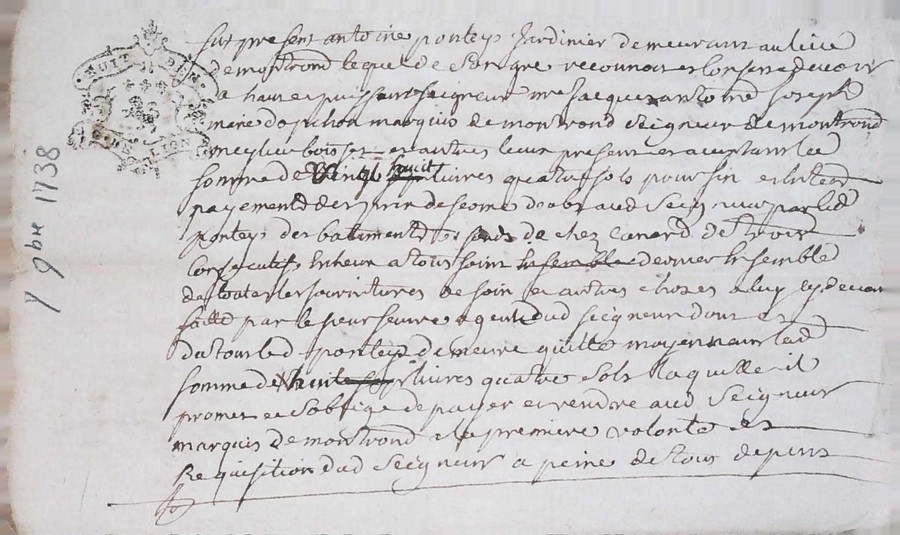 HUIT DEN
LION
9bre 1738
fut present antoine ponteys Jardinier demeurant au lieu
de montrond lequel de son gre reconnoit et confesse devoir
a haut et puissant seigneur mre Jacques antoine Joseph
marie marquis de montrond seigneur de montrond
meylieu boisset et autres lieux present et acceptant la
somme de Vingt huit livres quatre sols pour fin et entier
payement du prix de ferme aud seigneur par led
ponteys des batiments et fonds de chez Canard de trois
consecutifs a tous saint dernier ensemble
de toutes les fournitures de foin et autres choses a luy
faitte par le sieur agent dud seigneur dont et
du tout led ponteys demeure quitte moyennant lad
somme de livres quatre sols laquelle il
promet et s'oblige de payer et rendre aud Seigneur
marquis de montrond a la premiere volonté et
Requisition dud seigneur a peine de tous depens